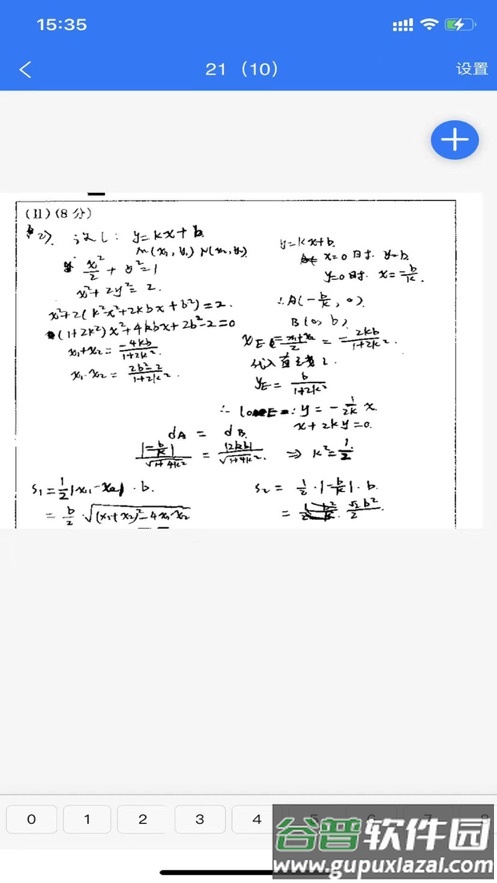 15:35
21（10）
设置
(II)(8分)
(2) 设 l: y=kx+b
M(x₁, y₁) N(x₂, y₂)
x²/2 + y²=1
x²+2y²=2.
x²+2(k²x²+2kbx+b²)=2.
(1+2k²)x²+4kbx+2b²-2=0
x₁+x₂ = -4kb/1+2k².
x₁·x₂ = 2b²-2/1+2k².
y=kx+b.
x=0时. y=b
y=0时. x=-b/k.
∴A(-b/k, 0).
B(0, b)
x_E = x₁+x₂/2 = -2kb/1+2k².
代入直线
y_E = b/1+2k²
y = -1/2k x
x+2ky=0.
d_A = d_B.
|-b/k|/√1+4k² = |2kb|/√1+4k² ⇒ k²=1/2
S₁=1/2|x₁-x₂|·b.
= b/2·√(x₁+x₂)²-4x₁x₂
S₂ = 1/2·|-b/k|·b.
= √2b²/2
0 1 2 3 4
谷普软件园
www.gupuxlazal.com